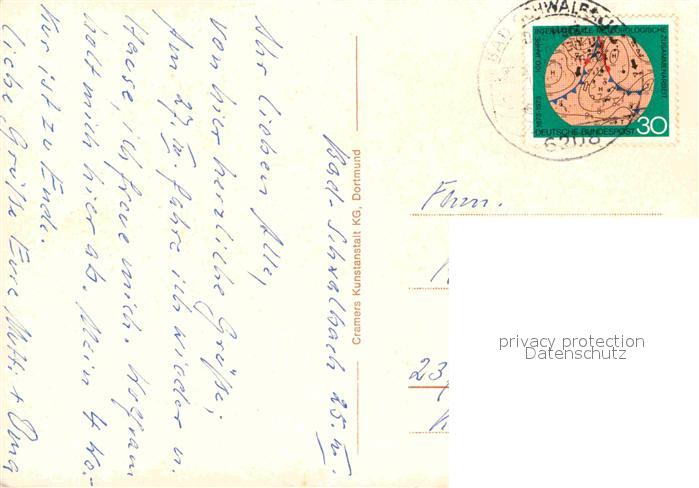 Bad-Schwalbach 25. III.
Ihr lieben Alle,
von hier herzliche Grüße;
Am 27. III. fahre ich wieder n.
Hause, ich freue mich. Wolfram
holt mich hier ab. Mein 4 Wo.-
Kur ist zu Ende.
Liebe Grüße Eure Mutti + Oma
Cramers Kunstanstalt KG, Dortmund
BAD SCHWALBACH
6208
100 JAHRE INTERNATIONALE METEOROLOGISCHE ZUSAMMENARBEIT
1873-1973
DEUTSCHE BUNDESPOST 30
Fam.
23
privacy protection
Datenschutz